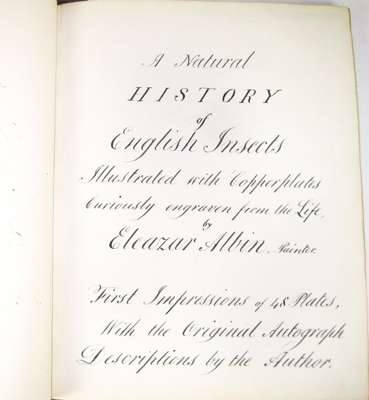 A Natural
HISTORY
of
English Insects
Illustrated with Copperplates
Curiously engraven from the Life,
by
Eleazar Albin. Painter.
First Impressions of 48 Plates,
With the Original Autograph
Descriptions by the Author.